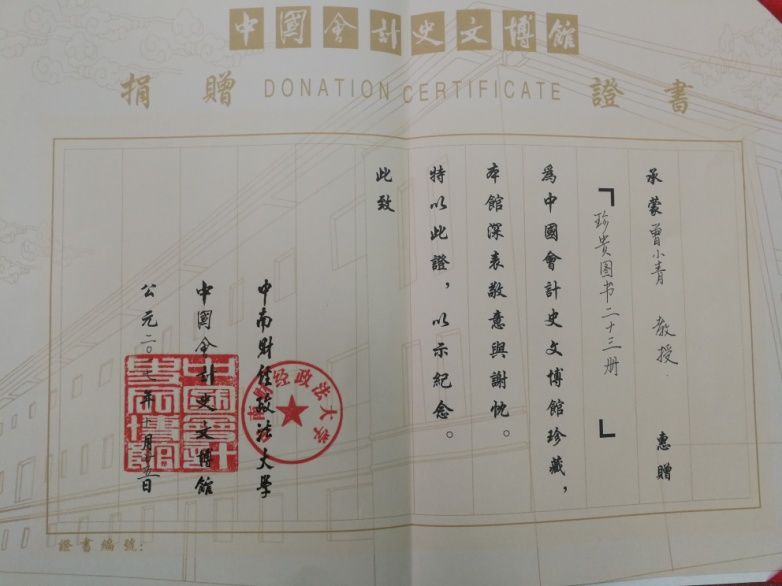 中國會計史文博館
捐贈 DONATION CERTIFICATE 證書
承蒙曾小青 教授 惠贈
「珍贵图书二十三册」
爲中國會計史文博館珍藏，
本館深表敬意與謝忱。
特以此證，以示紀念。
此致
中南财经政法大學
中國會計史文博館
公元二〇一七年十一月十五日
南财经政法大学
證書編號：